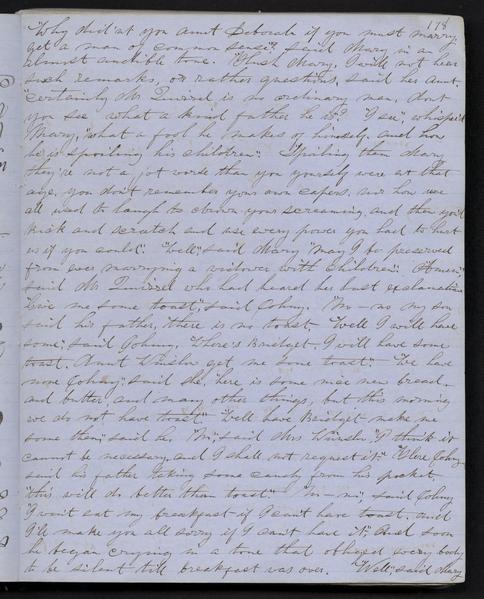 178
"Why did'nt you aunt Deborah if you must marry,
get a man of common sense" said Mary in an
almost audible tone. "Hush Mary, I will not hear
such remarks, or rather questions, said her aunt,
"certainly Mr is no ordinary man, dont
you see what a kind father he is"? "I see", whisp'd
Mary, "what a fool he makes of himself. and how
he is spoiling his children". "Spoiling them Mary
they're not a jot worse than you yourself were at that
age, you don't remember your own capers. nor how we
all used to laugh to drown your screaming, and then you'd
kick and scratch and use every power you had to hurt
us if you could". "Well," said Mary "may I be preserved
from ever marrying a widower with children". "Amen",
said Mr who had heard her last exclamation
"Give me some toast", said Johny. "No - no my son
said his father, "there is no toast. "Well I will have
some", said Johny. "There's Bridget, I will have some
toast. Aunt get me some toast". "We have
none Johny", said she, "here is some nice new bread,
and butter and many other things, but this morning
we do not have toast". "Well have Bridget make me
some then", said he. "No", said Mrs "I think it
cannot be necessary and I shall not request it". "Here Johny
said his father taking some candy from his pocket-
"this will do better than toast". "N - no", said Johny
"I won't eat my breakfast if I can't have toast. and
I'll make you all sorry if I can't have it". And soon
he began crying in a tone that obliged every body
to be silent till breakfast was over. "Well", said Mary